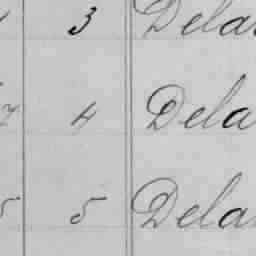 3 Dela
7 4 Dela
5 5 Dela